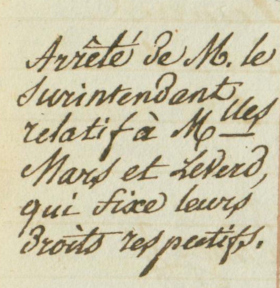 Arrêté de M. le
Surintendant
relatif à M<sup>lles</sup>
Mars et Leverd,
qui fixe leurs
droits respectifs.